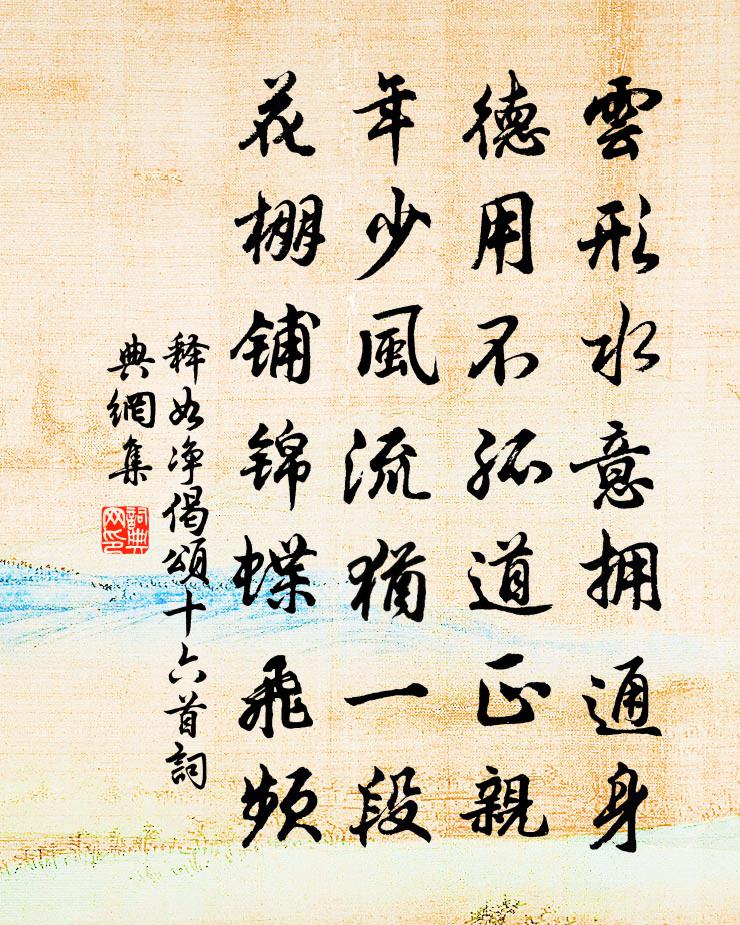 雲形水意拥通身
德用不孤道正親
年少風流猶一段
花棚铺锦蝶飛频
释如净偈頌十六首詞
典網集
詞典
网印